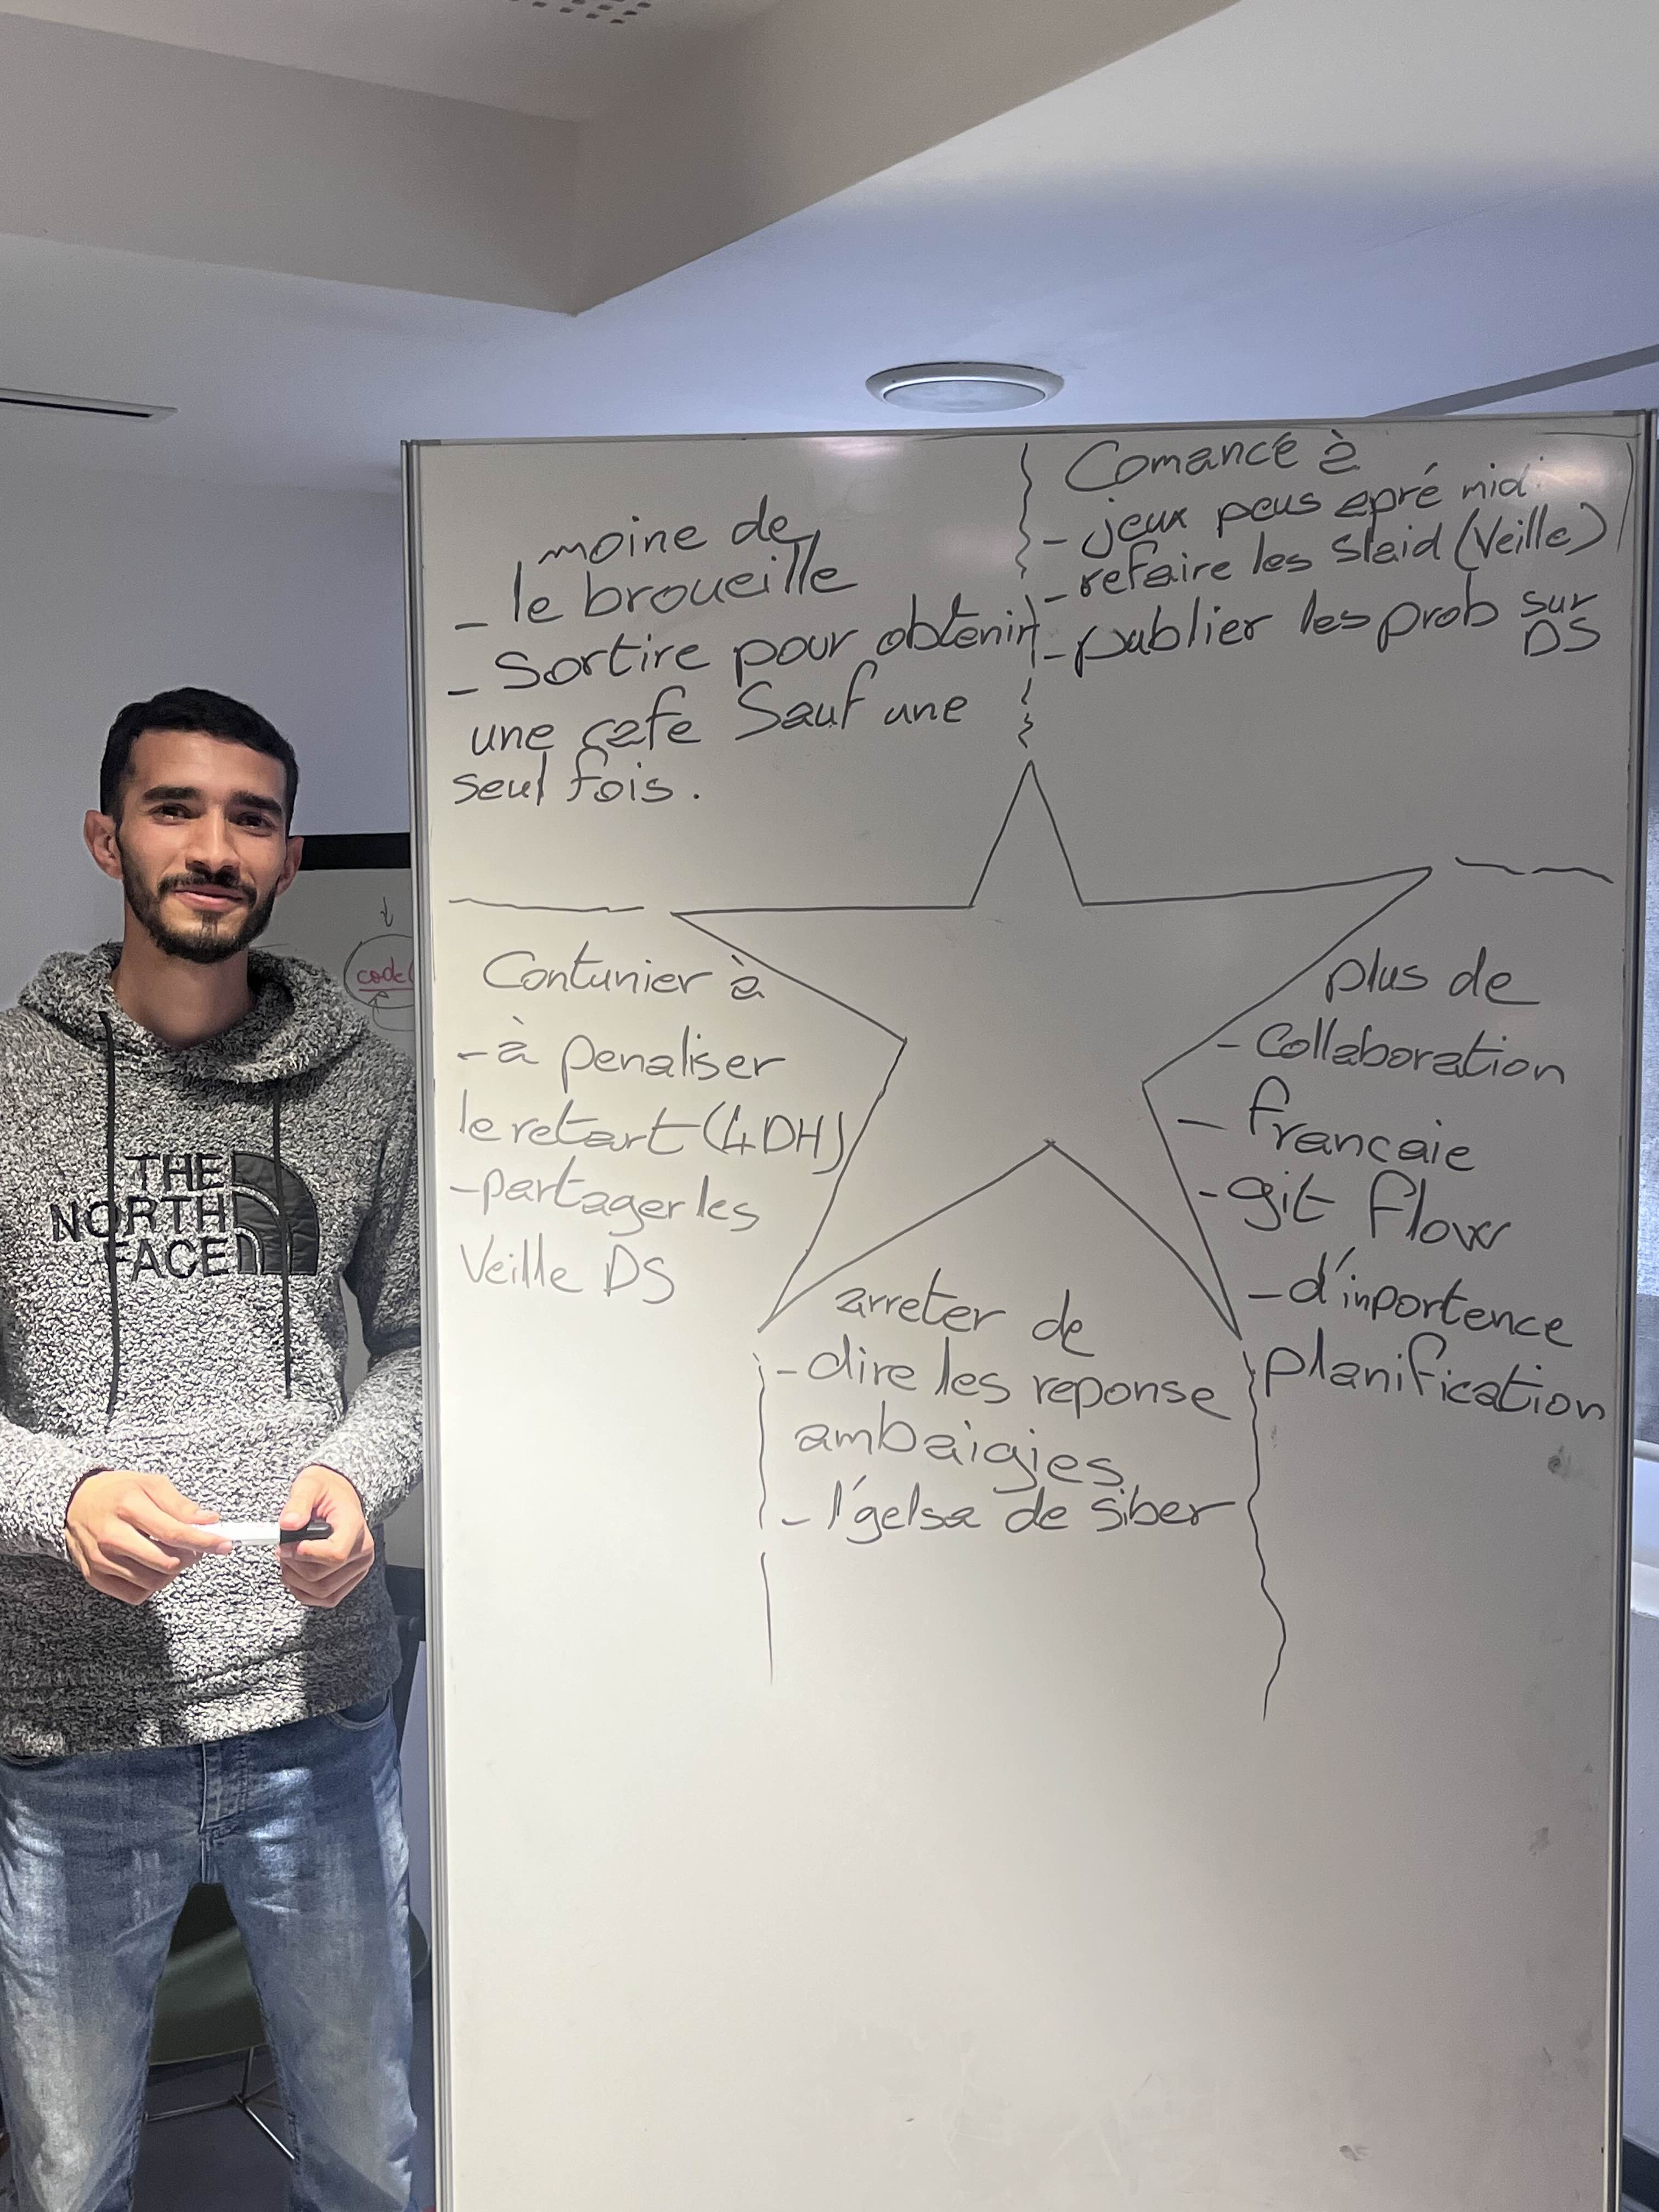 moine de
- le broueille
- Sortire pour obtenir
une cafe Sauf une
seul fois.
Comance à
- jeux peus apré midi
- refaire les slaid (Veille)
- publier les prob sur
DS
Contunier à
- à penaliser
le retart (4DH)
- partager les
Veille DS
plus de
- Collaboration
- francaie
- git flow
- d'inportence
planification
arreter de
- dire les reponse
ambaigies
- l'gelsa de siber
code
THE
NORTH
FACE